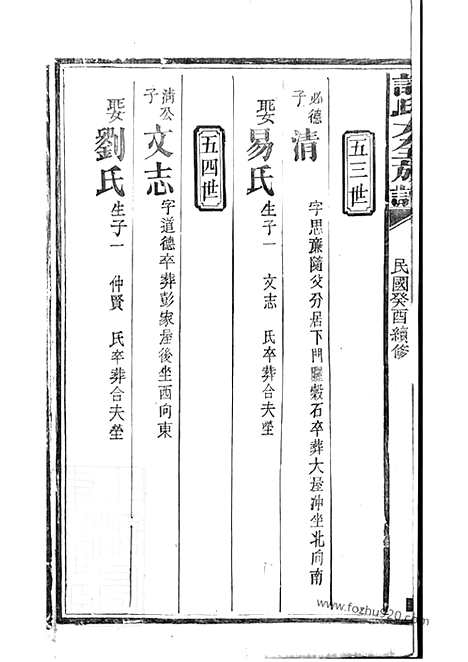 民國癸酉續修
五三世
必德子
清
字思廉隨父分居下門 穀石卒葬大屋沖坐北向南
娶易氏
生子一 文志 氏卒葬合夫塋
五四世
清公子
文志
字道德卒葬彭家屋後坐西向東
娶劉氏
生子一 仲賢 氏卒葬合夫塋
www.fozhus920.com